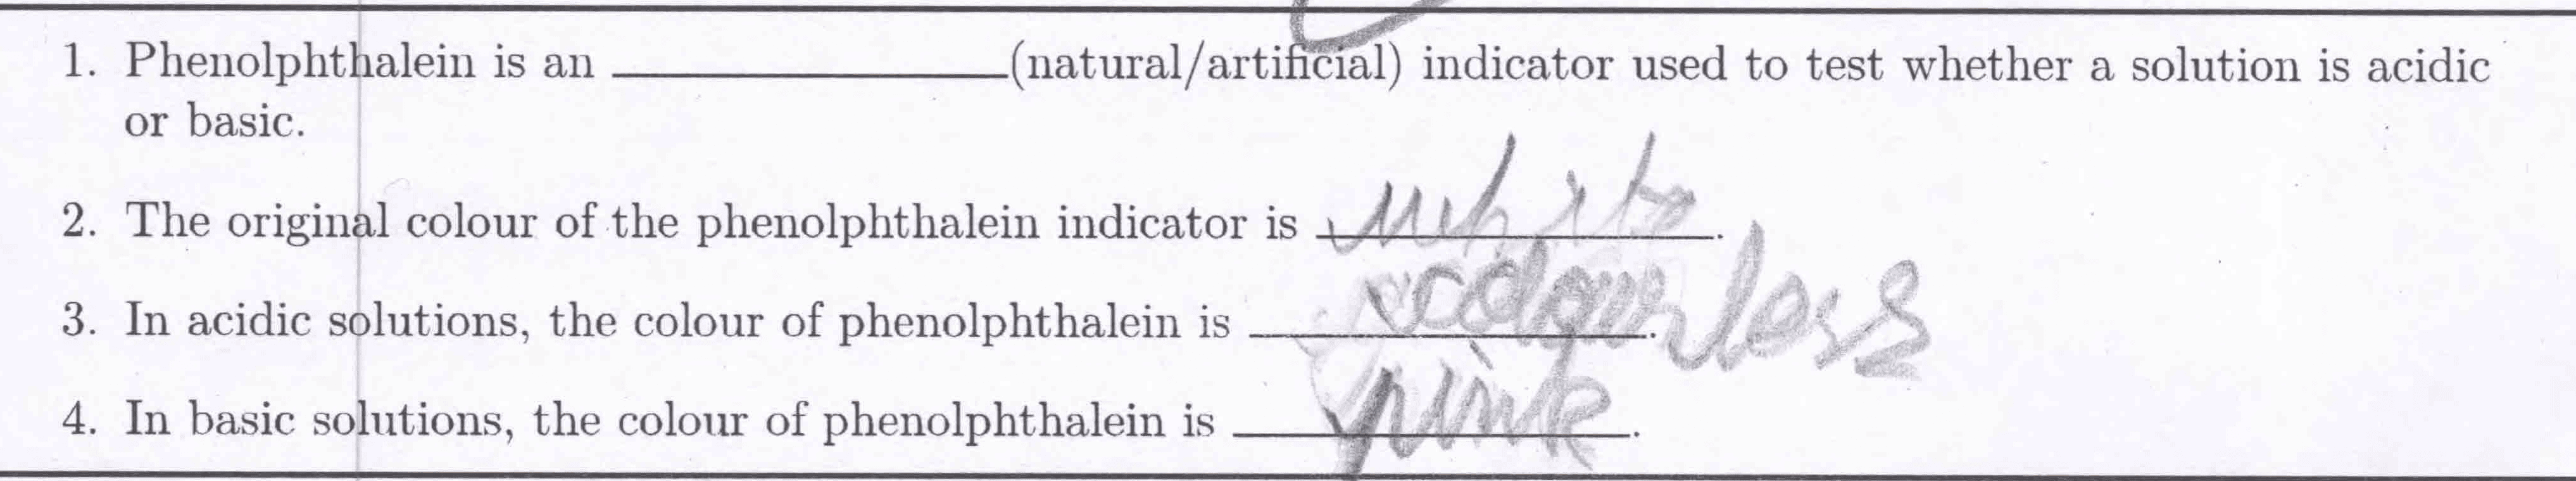 1. Phenolphthalein is an ____________(natural/artificial) indicator used to test whether a solution is acidic
or basic.
2. The original colour of the phenolphthalein indicator is white.
3. In acidic solutions, the colour of phenolphthalein is colourless.
4. In basic solutions, the colour of phenolphthalein is pink.